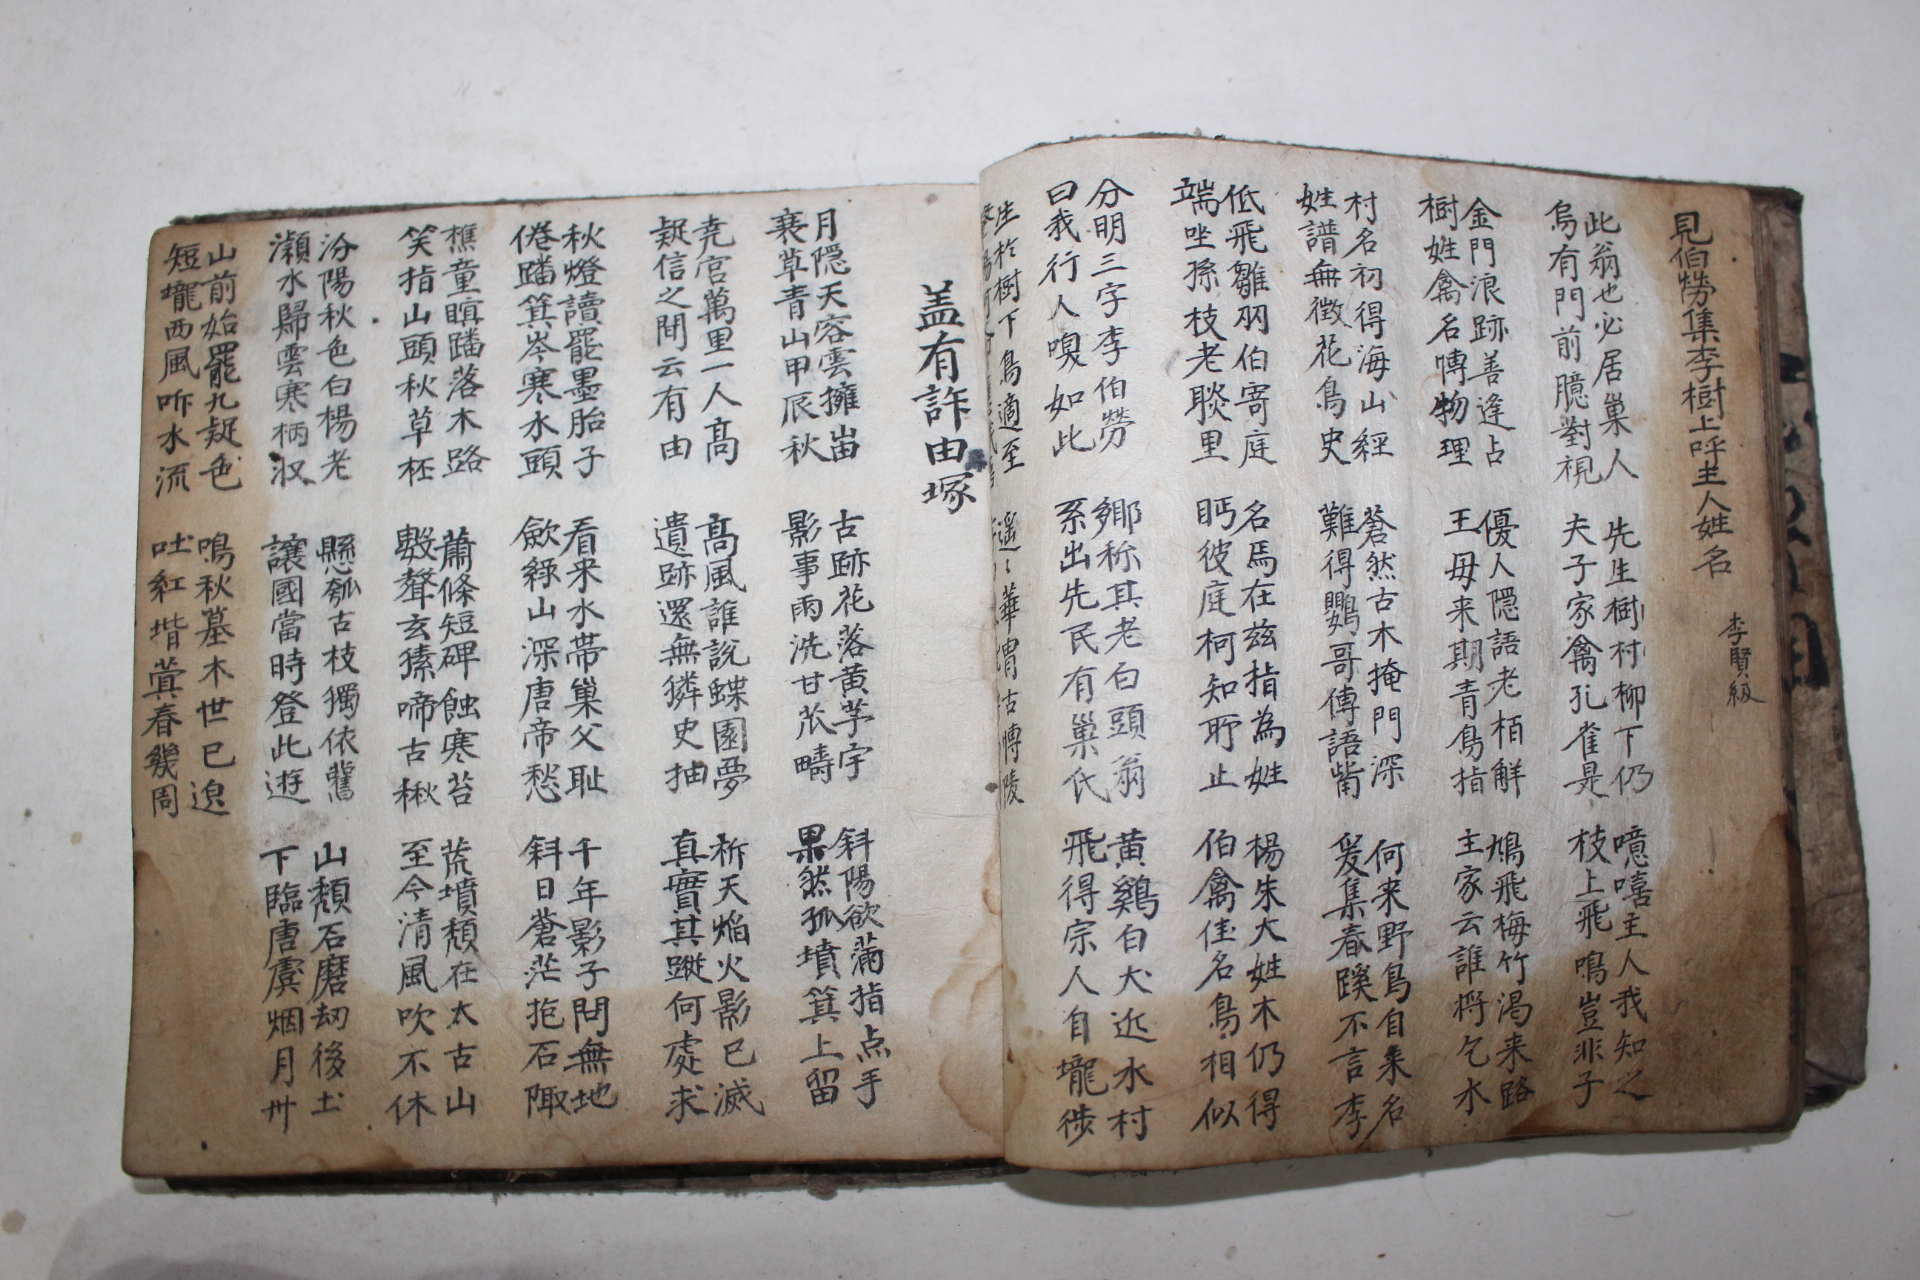 見伯勞集李樹上呼主人姓名 李賢級
此翁也必居巢人 先生樹村柳下仍 噫嘻主人我知之
烏有門前臆對視 夫子家禽孔雀是 枝上飛鳴豈非子
金門浪跡善逢占 優人隱語老栢解 鴆飛梅竹渴来路
樹姓禽名愽物理 王母来期青鳥指 主家云誰将乞水
村名初得海山經 蒼然古木掩門深 何来野鳥自来名
姓譜無徵花鳥史 難得鸚哥傳語觜 爰集春蹊不言李
低飛雛羽伯寄庭 名焉在兹指為姓 楊朱大姓木仍得
端坐孫枝老聃里 眄彼庭柯知所止 伯禽佳名鳥相似
分明三字李伯勞 鄉称其老白頭翁 黄鷄白犬近水村
曰我行人嗅如此 系出先民有巢氏 飛得宗人自壠徙
生於樹下鳥適至 遥〻華胄古愽陵
盖有許由塚
月隱天容雲擁峀 古跡花落黄茅宇 斜陽欲滿指点手
衰草青山甲辰秋 影事雨洗甘苽疇 果然孤墳箕上留
堯宮萬里一人高 高風誰說蝶園夢 析天焰火影已滅
疑信之間云有由 遺跡還無獜史抽 真實其蹤何處求
秋燈讀罷墨胎子 看来水帯巢父耻 千年影子問無地
倦蹯箕岑寒水頭 飲綠山深唐帝愁 斜日蒼茫抱石陬
樵童暝蹯落木路 蕭條短碑蝕寒苔 荒墳頹在太古山
笑指山頭秋草 數聲玄猿啼古楸 至今清風吹不休
汾陽秋色白楊老 懸瓠古枝獨依舊 山頹石磨刧後土
瀨水歸雲寒柄収 讓國當時登此遊 下臨唐虞烟月州
山前始罷九疑色 鳴秋墓木世已遠
短壠西風咋水流 吐紅堦蓂春幾周